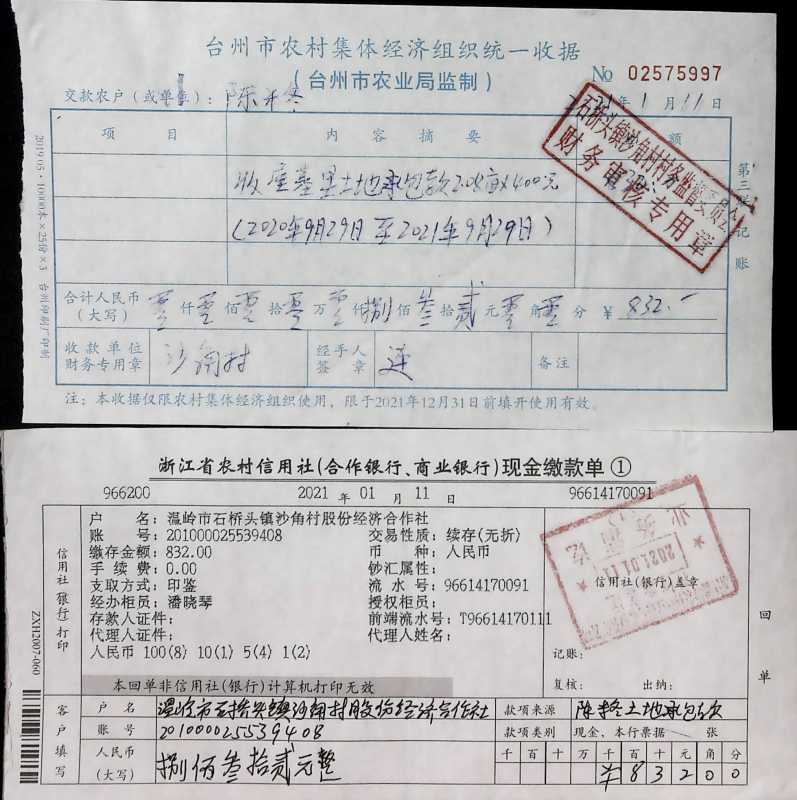 台州市农村集体经济组织统一收据
(台州市农业局监制)
No 02575997
交款农户(或单位): 陈 年1月11日
项目 内容摘要 额
收 土地承包款2.08亩×400元
(2020年9月29日至2021年9月29日)
合计人民币(大写) 零仟零佰零拾零万零仟捌佰叁拾贰元零角零分 ¥ 832.-
收款单位财务专用章 沙角村 经手人签章 连 备注
注:本收据仅限农村集体经济组织使用,限于2021年12月31日前填开使用有效。
2019.05·10000本×25份×3 台州印刷厂印制
第三联 记账
石桥头镇沙角村村务监督委员会
财务审核专用章
浙江省农村信用社(合作银行、商业银行)现金缴款单①
966200 2021年01月11日 96614170091
户名:温岭市石桥头镇沙角村股份经济合作社
账号:201000025539408 交易性质:续存(无折)
缴存金额:832.00 币种:人民币
手续费:0.00 钞汇属性:
支取方式:印鉴 流水号:96614170091
经办柜员:潘晓琴 授权柜员:
存款人证件: 前端流水号:T96614170111
代理人证件: 代理人姓名:
人民币 100(8) 10(1) 5(4) 1(2)
本回单非信用社(银行)计算机打印无效
信用社(银行)打印
信用社(银行)盖章
2021.01.11
记账:
复核: 出纳:
回单
ZXH2007-060
客户填写
户名 温岭市石桥头镇沙角村股份经济合作社 款项来源 陈 土地承包款
账号 201000025539408 款项类别 现金、本行票据 张
人民币(大写) 捌佰叁拾贰元整 千百十万千百十元角分
¥83200